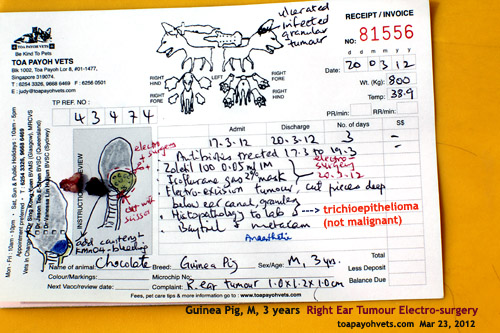 ulcerated
infected
granular
tumour
RECEIPT / INVOICE
NO. 81556
Be Kind To Pets
TOA PAYOH VETS
Blk 1002, Toa Payoh Lor 8, #01-1477,
Singapore 319074.
T : 6254 3326, 9668 6469 F : 6256 0501
E : judy@toapayohvets.com
d d m m y y
DATE 20 03 12
Wt. (Kg): 800
Temp: 38.9
RIGHT FORE
RIGHT HIND
LEFT HIND
LEFT FORE
PR/min: RR/min:
TP REF NO :
43474
Admit Discharge No. of days S$
17.3.12 20.3.12 3
Antibiotics treated 17.3 to 19.3
electro-
surgery
20.3.12
Zoletil 100 0.05 ml IM
Isoflurane gas 2% mask
Electro-excision tumour, cut pieces deep
below ear canal, granuley
Histopathology to lab
trichioepithelioma
(not malignant)
Baytril + metacam
Anaesthetic
INSTRUCTION REVIEW
electro
surgery
cut with
scissor
add cautery
KMnO4 - bleeding
Mon - Fri: 10am - 9pm Sat, Sun & Public Holidays: 10am - 5pm
Name of animal: Chocolate Breed: Guinea Pig Sex/Age: M, 3 yrs.
Colour/Markings: Microchip No:
Next Vacc/review date: Complaint: R. ear tumour 1.0x1.2x1.0cm
Total
Less Deposit
Balance
Fees, pet care tips & more information go to : www.toapayohvets.com
Guinea Pig, M, 3 years Right Ear Tumour Electro-surgery
toapayohvets.com Mar 23, 2012